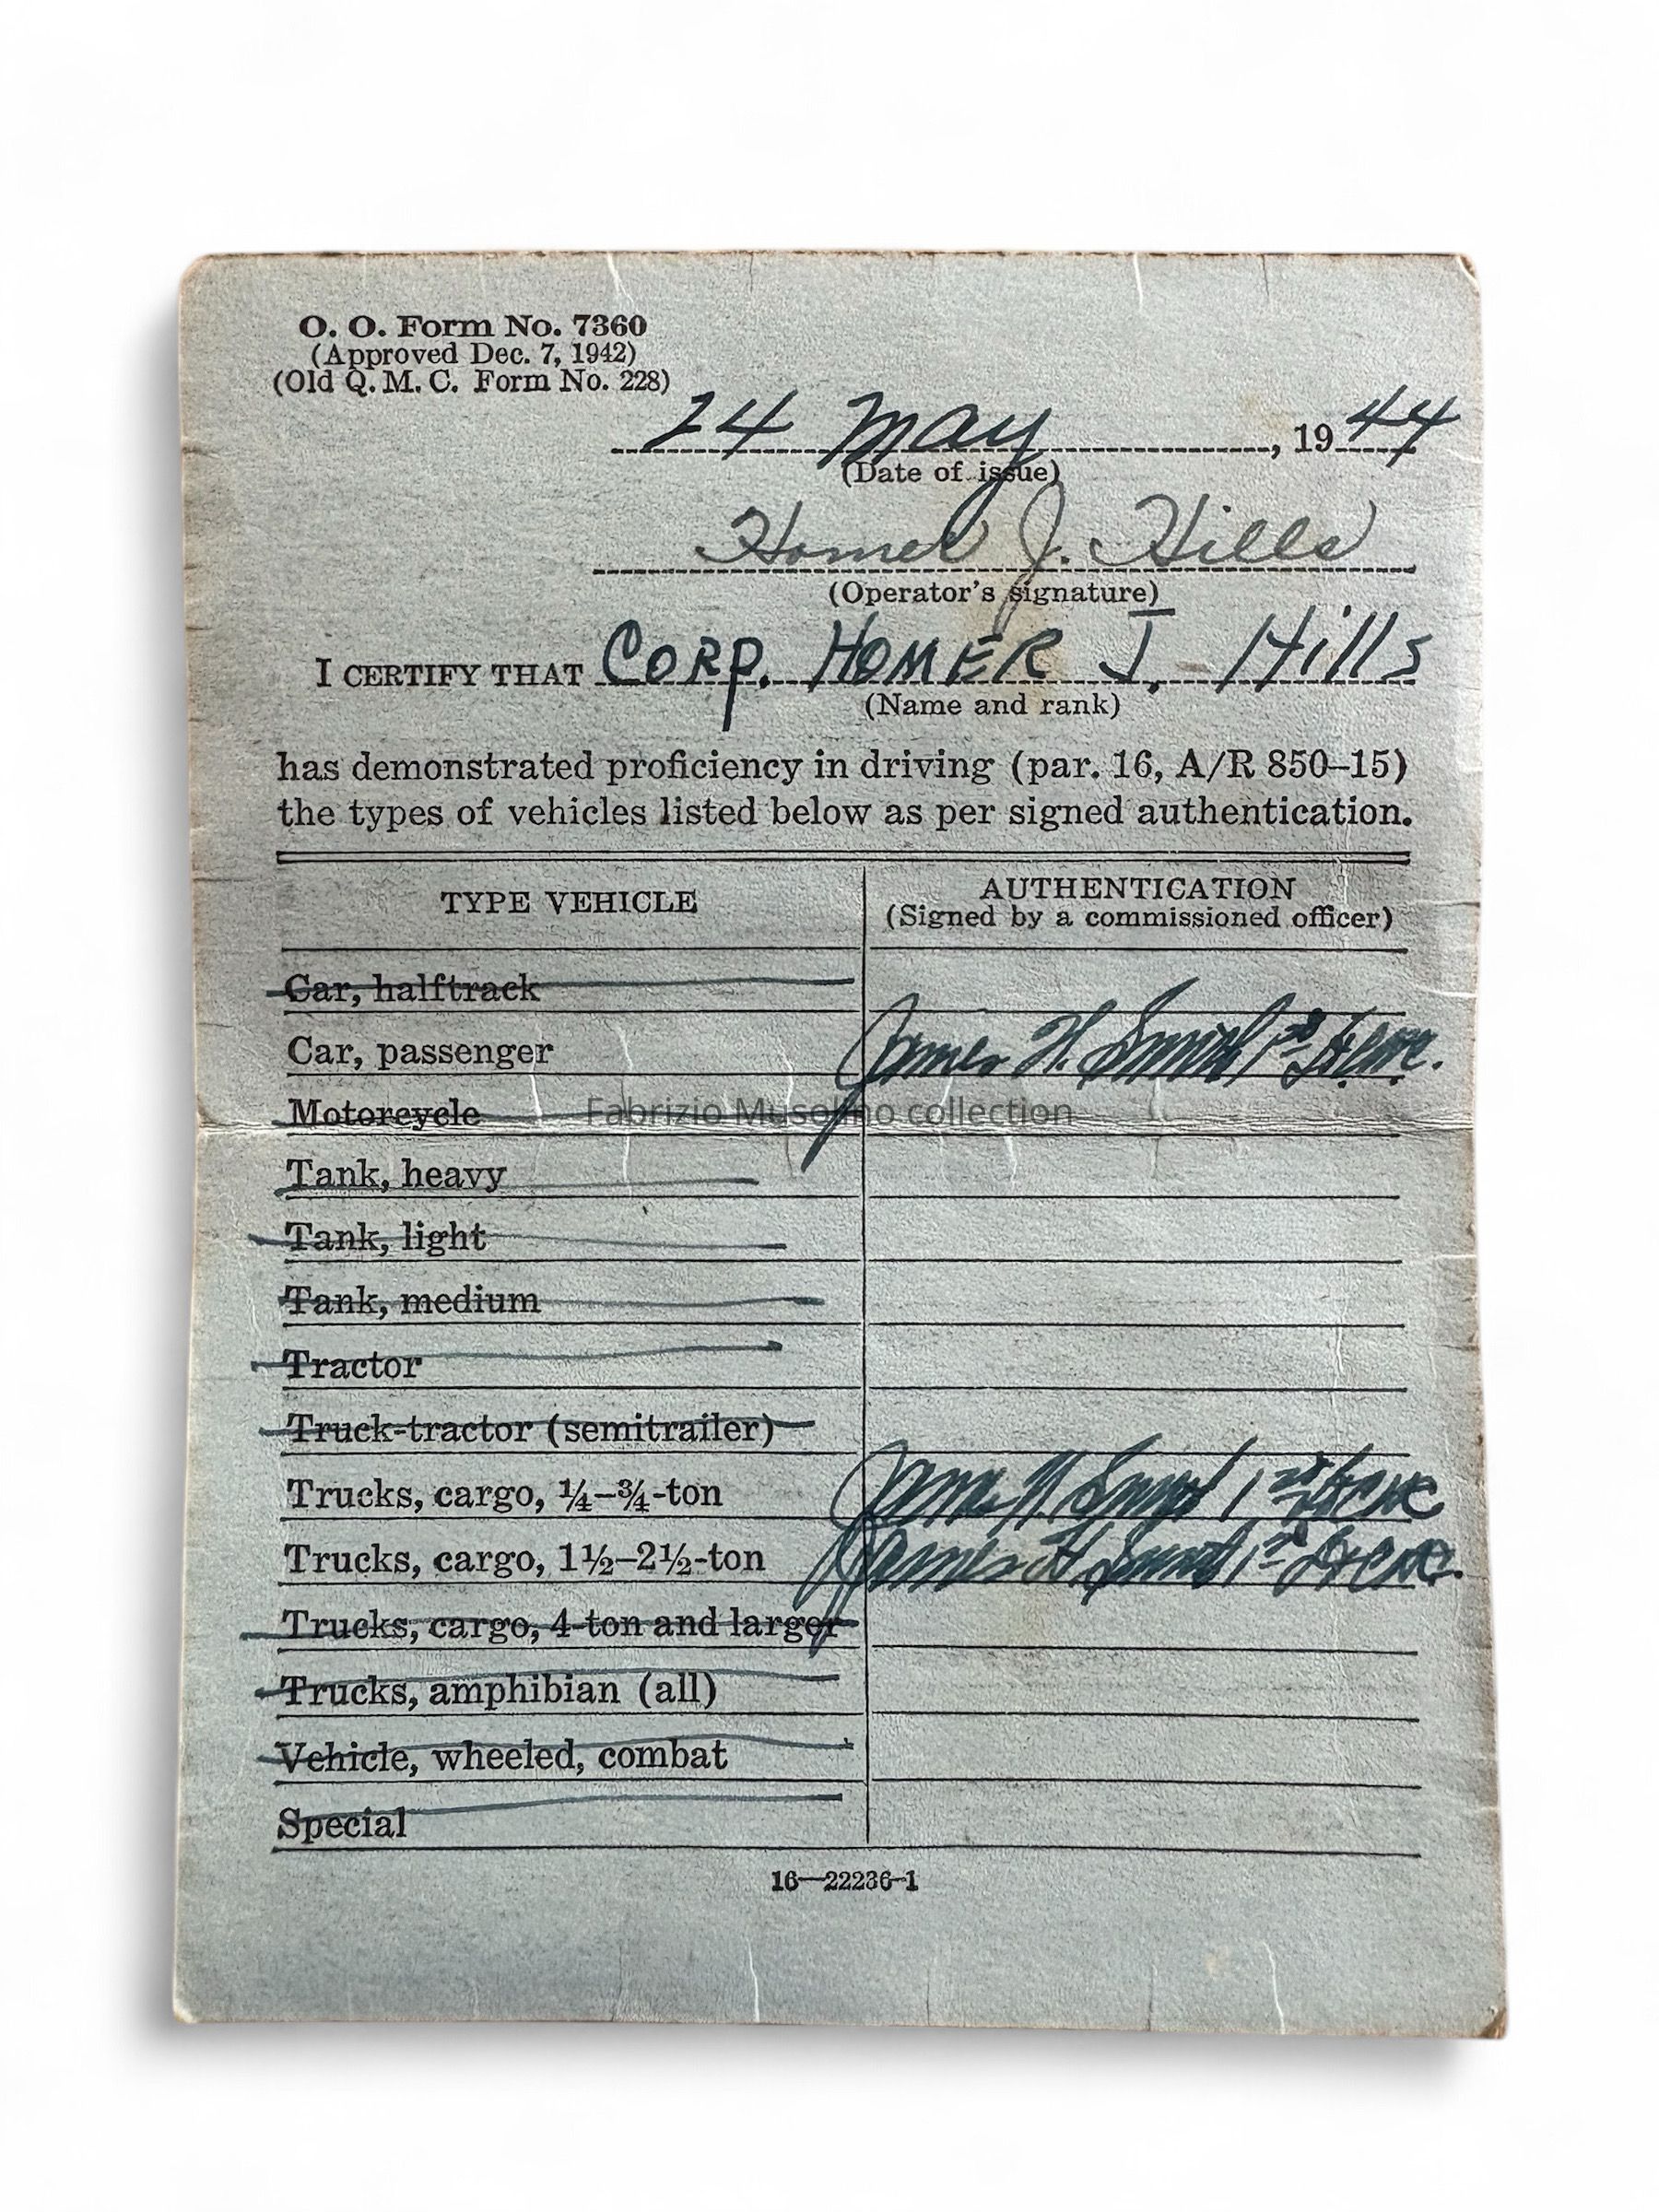 O. O. Form No. 7360
(Approved Dec. 7, 1942)
(Old Q. M. C. Form No. 228)
24 May, 1944
(Date of issue)
Homer J. Hills
(Operator's signature)
I CERTIFY THAT Corp. HOMER J. Hills
(Name and rank)
has demonstrated proficiency in driving (par. 16, A/R 850–15)
the types of vehicles listed below as per signed authentication.
TYPE VEHICLE AUTHENTICATION
(Signed by a commissioned officer)
Car, halftrack
Car, passenger James H. Smith 1st
Motorcycle
Fabrizio Musolino collection
Tank, heavy
Tank, light
Tank, medium
Tractor
Truck-tractor (semitrailer)
Trucks, cargo, ¼–¾-ton James H. Smith 1st
Trucks, cargo, 1½–2½-ton James H. Smith 1st
Trucks, cargo, 4-ton and larger
Trucks, amphibian (all)
Vehicle, wheeled, combat
Special
16—22236-1